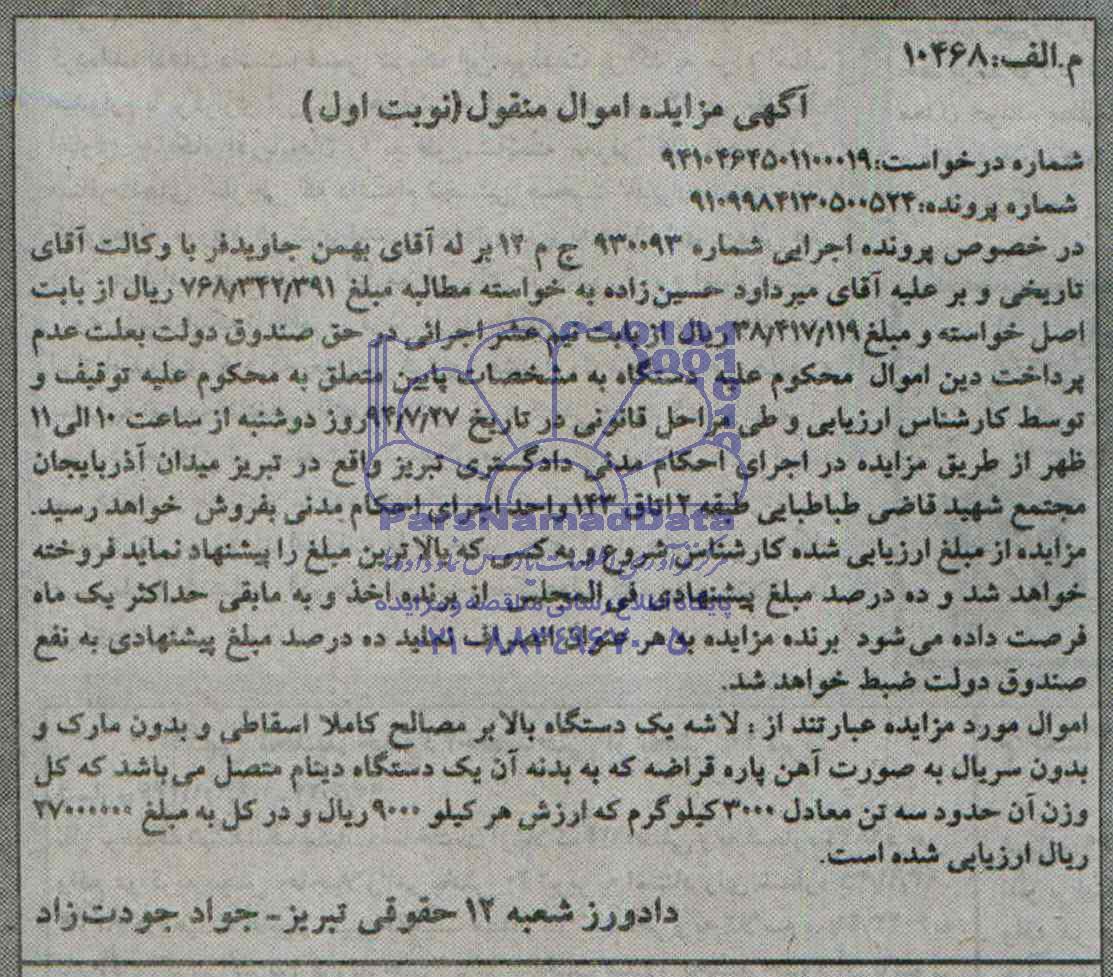 م.الف:۱۰۴۶۸
آگهی مزایده اموال منقول(نوبت اول)
شماره درخواست:۹۴۱۰۴۶۴۵۰۱۱۰۰۰۱۹
شماره پرونده:۹۱۰۹۹۸۴۱۳۰۵۰۰۵۲۴
در خصوص پرونده اجرایی شماره ۹۳۰۰۹۳ ج م ۱۲ بر له آقای بهمن جاویدفر با وکالت آقای
تاریخی و بر علیه آقای میرداود حسین‌زاده به خواسته مطالبه مبلغ ۷۶۸/۳۴۲/۳۹۱ ریال از بابت
اصل خواسته و مبلغ ۳۸/۴۱۷/۱۱۹ ریال از بابت نیم عشر اجرائی در حق صندوق دولت بعلت عدم
پرداخت دین اموال محکوم علیه دستگاه به مشخصات پایین متعلق به محکوم علیه توقیف و
توسط کارشناس ارزیابی و طی مراحل قانونی در تاریخ ۹۴/۷/۲۷ روز دوشنبه از ساعت ۱۰ الی ۱۱
ظهر از طریق مزایده در اجرای احکام مدنی دادگستری تبریز واقع در تبریز میدان آذربایجان
مجتمع شهید قاضی طباطبایی طبقه ۲ اتاق ۱۴۳ واحد اجرای احکام مدنی بفروش خواهد رسید.
مزایده از مبلغ ارزیابی شده کارشناس شروع و به کسی که بالاترین مبلغ را پیشنهاد نماید فروخته
خواهد شد و ده درصد مبلغ پیشنهادی فی‌المجلس از برنده اخذ و به مابقی حداکثر یک ماه
فرصت داده می‌شود برنده مزایده به هر عنوان انصراف نماید ده درصد مبلغ پیشنهادی به نفع
صندوق دولت ضبط خواهد شد.
اموال مورد مزایده عبارتند از : لاشه یک دستگاه بالابر مصالح کاملا اسقاطی و بدون مارک و
بدون سریال به صورت آهن پاره قراضه که به بدنه آن یک دستگاه دینام متصل می‌باشد که کل
وزن آن حدود سه تن معادل ۳۰۰۰ کیلوگرم که ارزش هر کیلو ۹۰۰۰ ریال و در کل به مبلغ ۲۷۰۰۰۰۰۰
ریال ارزیابی شده است.
دادورز شعبه ۱۲ حقوقی تبریز- جواد جودت‌زاد
ParsNamadData
پایگاه اطلاع رسانی مناقصه و مزایده
۰۲۱-۸۸۳۴۹۶۷۰-۵